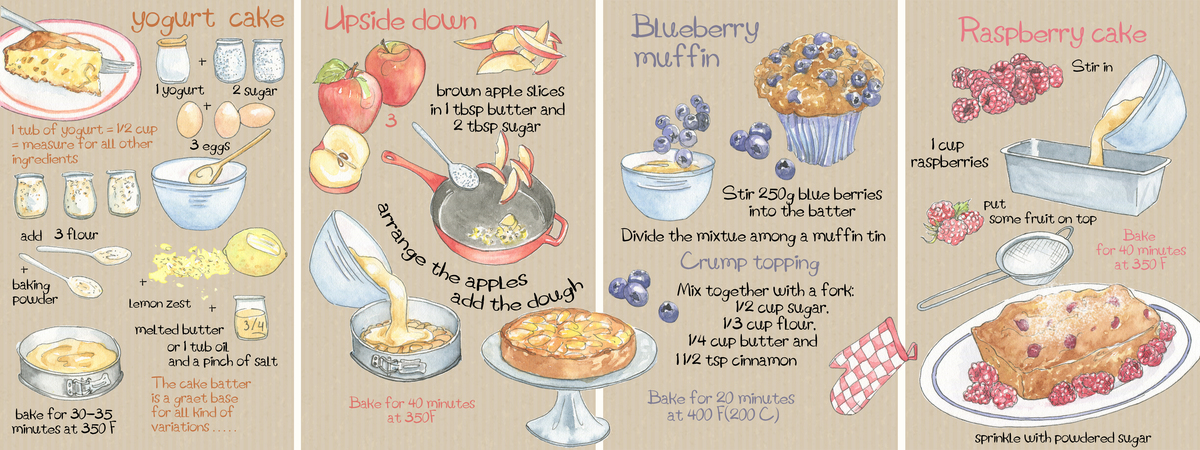 yogurt cake
1 yogurt + 2 sugar
+
3 eggs
1 tub of yogurt = 1/2 cup
= measure for all other
ingredients
add 3 flour
+
baking
powder
+
lemon zest
+
3/4
melted butter
or 1 tub oil
and a pinch of salt
bake for 30-35
minutes at 350 F
The cake batter
is a graet base
for all kind of
variations.....
Upside down
3
brown apple slices
in 1 tbsp butter and
2 tbsp sugar
arrange the apples
add the dough
Bake for 40 minutes
at 350F
Blueberry
muffin
Stir 250g blue berries
into the batter
Divide the mixtue among a muffin tin
Crump topping
Mix together with a fork:
1/2 cup sugar,
1/3 cup flour,
1/4 cup butter and
1 1/2 tsp cinnamon
Bake for 20 minutes
at 400 F(200 C)
Raspberry cake
Stir in
1 cup
raspberries
put
some fruit on top
Bake
for 40 minutes
at 350 F
sprinkle with powdered sugar